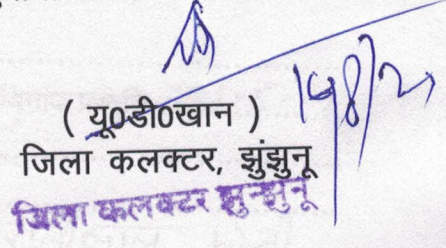 ( यू0डी0खान )
जिला कलक्टर, झुंझुनू
जिला कलक्टर झुन्झुनू